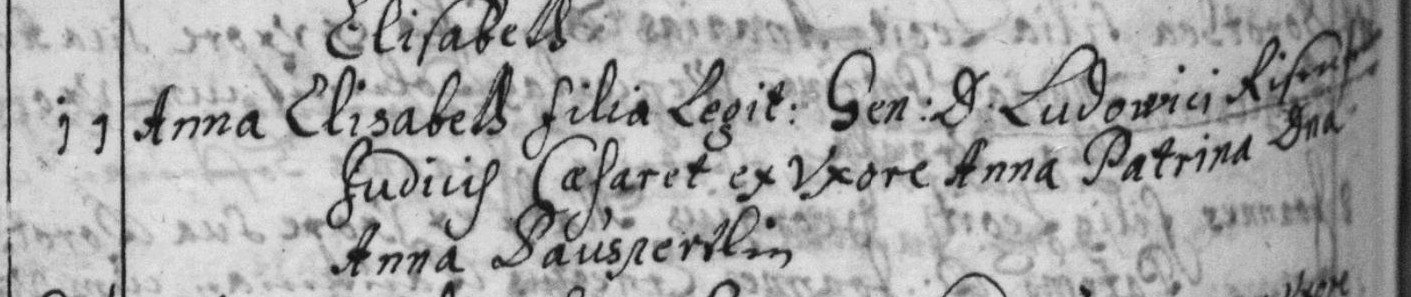 Elisabeth
11 Anna Elisabeth filia Legit: Gen: D: Ludovici
Judicis Cæsaret ex Vxore Anna Patrina Dna
Anna
Vxore